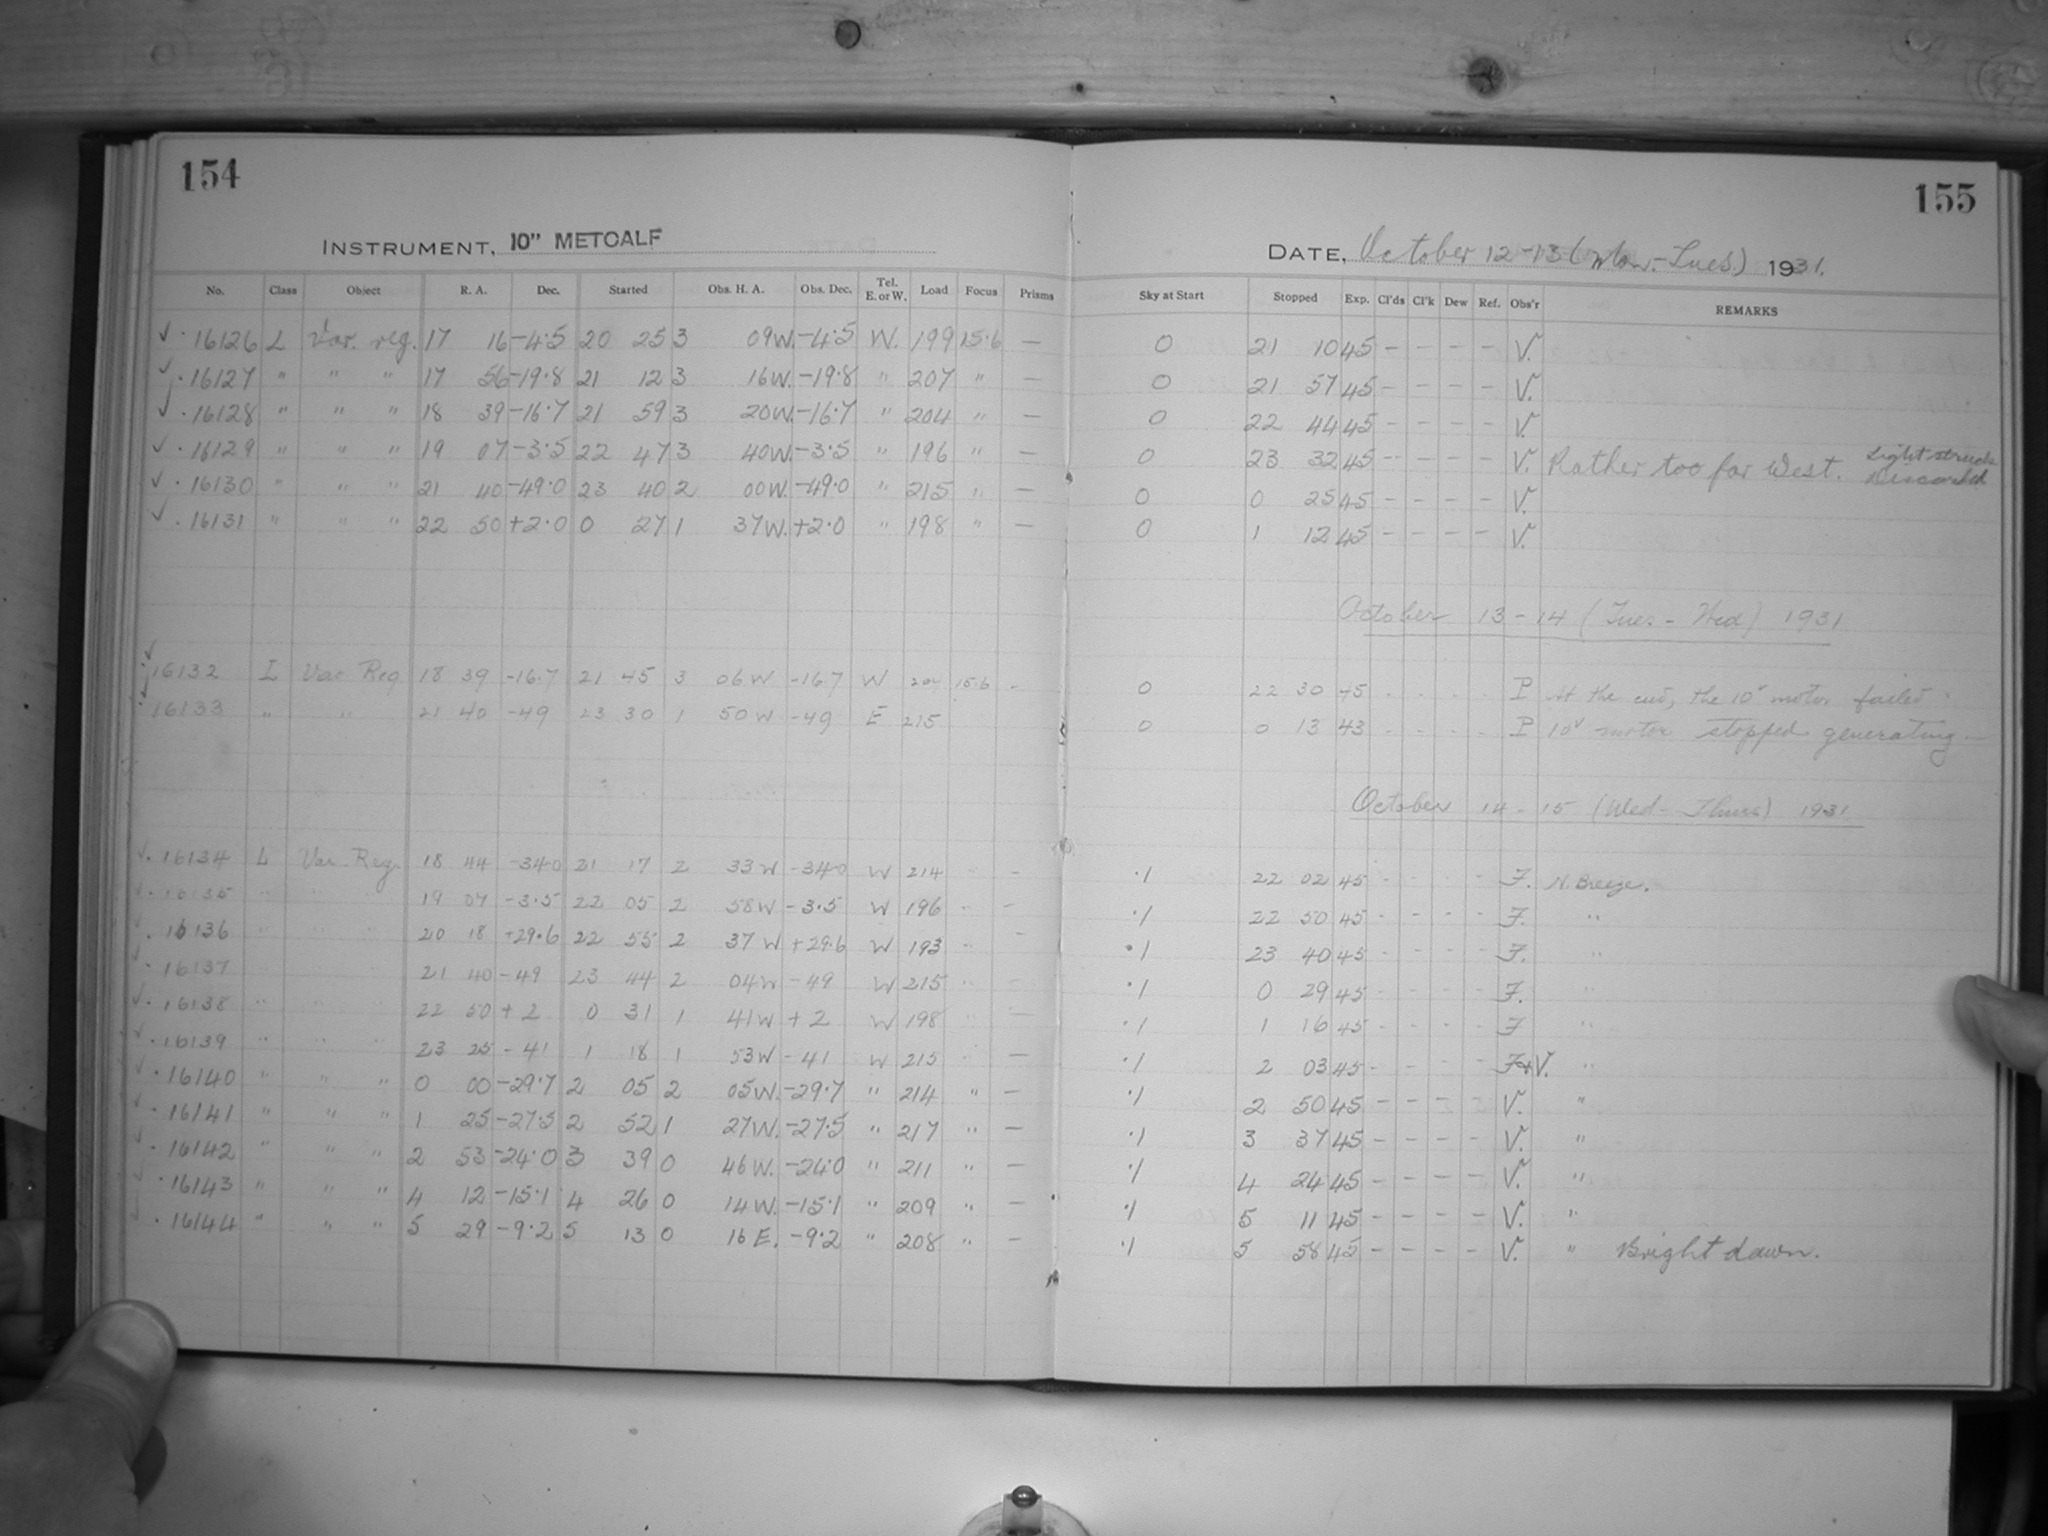 154
INSTRUMENT, 10" METCALF
No. Class Object R. A. Dec. Started Obs. H. A. Obs. Dec. Tel. E. or W. Load Focus Prisms
✓ · 16126 L Var. reg. 17 16 -4·5 20 25 3 09W. -4·5 W. 199 15·6 —
✓ · 16127 " " " 17 56 -19·8 21 12 3 16W. -19·8 " 207 " —
✓ · 16128 " " " 18 39 -16·7 21 59 3 20W. -16·7 " 204 " —
✓ · 16129 " " " 19 07 -3·5 22 47 3 40W. -3·5 " 196 " —
✓ · 16130 " " " 21 40 -49·0 23 40 2 00W. -49·0 " 215 " —
✓ · 16131 " " " 22 50 +2·0 0 27 1 37W. +2·0 " 198 " —
✓ 16132 L Var Reg 18 39 -16·7 21 45 3 06W -16.7 W 204 15·6 -
✓ 16133 " " 21 40 -49 23 30 1 50W -49 E 215
✓ · 16134 L Var. Reg. 18 44 -34·0 21 17 2 33W -34·0 W 214 -
✓ · 16135 " " " 19 07 -3·5 22 05 2 58W -3·5 W 196 " —
✓ · 16136 " " " 20 18 +29·6 22 55 2 37W +29·6 W 193 "
✓ · 16137 21 40 -49 23 44 2 04W -49 W 215 " —
✓ · 16138 " " " 22 50 +2 0 31 1 41W +2 W 198 " —
✓ · 16139 " " " 23 25 -41 1 18 1 53W -41 W 215 " —
✓ · 16140 " " " 0 00 -29·7 2 05 2 05W. -29·7 " 214 " —
✓ · 16141 " " " 1 25 -27·5 2 52 1 27W. -27·5 " 217 " —
✓ · 16142 " " " 2 53 -24·0 3 39 0 46W. -24·0 " 211 " —
✓ · 16143 " " " 4 12 -15·1 4 26 0 14W. -15·1 " 209 " —
✓ · 16144 " " " 5 29 -9·2 5 13 0 16E. -9·2 " 208 " —
155
DATE, October 12-13 (Mon.-Tues.) 1931.
Sky at Start Stopped Exp. Cl'ds Cl'k Dew Ref. Obs'r REMARKS
0 21 10 45 - - - - V.
0 21 57 45 - - - - V.
0 22 44 45 - - - - V.
0 23 32 45 - - - - V. Rather too far West. Light struck Discarded
0 0 25 45 - - - - V.
0 1 12 45 - - - - V.
October 13-14 (Tues - Wed) 1931
0 22 30 45 - - - - P At the end, the 10" motor failed.
0 0 13 43 - - - - P 10" motor stopped generating —
October 14-15 (Wed - Thurs) 1931
·1 22 02 45 - - - - F. N. Breeze.
·1 22 50 45 - - - - F. "
·1 23 40 45 - - - - F. "
·1 0 29 45 - - - - F. "
·1 1 16 45 - - - - F "
·1 2 03 45 - - - - F+V. "
·1 2 50 45 - - - - V. "
·1 3 37 45 - - - - V. "
·1 4 24 45 - - - - V. "
·1 5 11 45 - - - - V. "
·1 5 58 45 - - - - V. " Bright dawn.